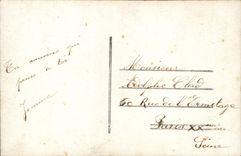 Ta amie qui
pense à toi
Jeanne
Monsieur
Adolphe Clad
60 Rue de l'Ermitage
Paris XXème
Seine